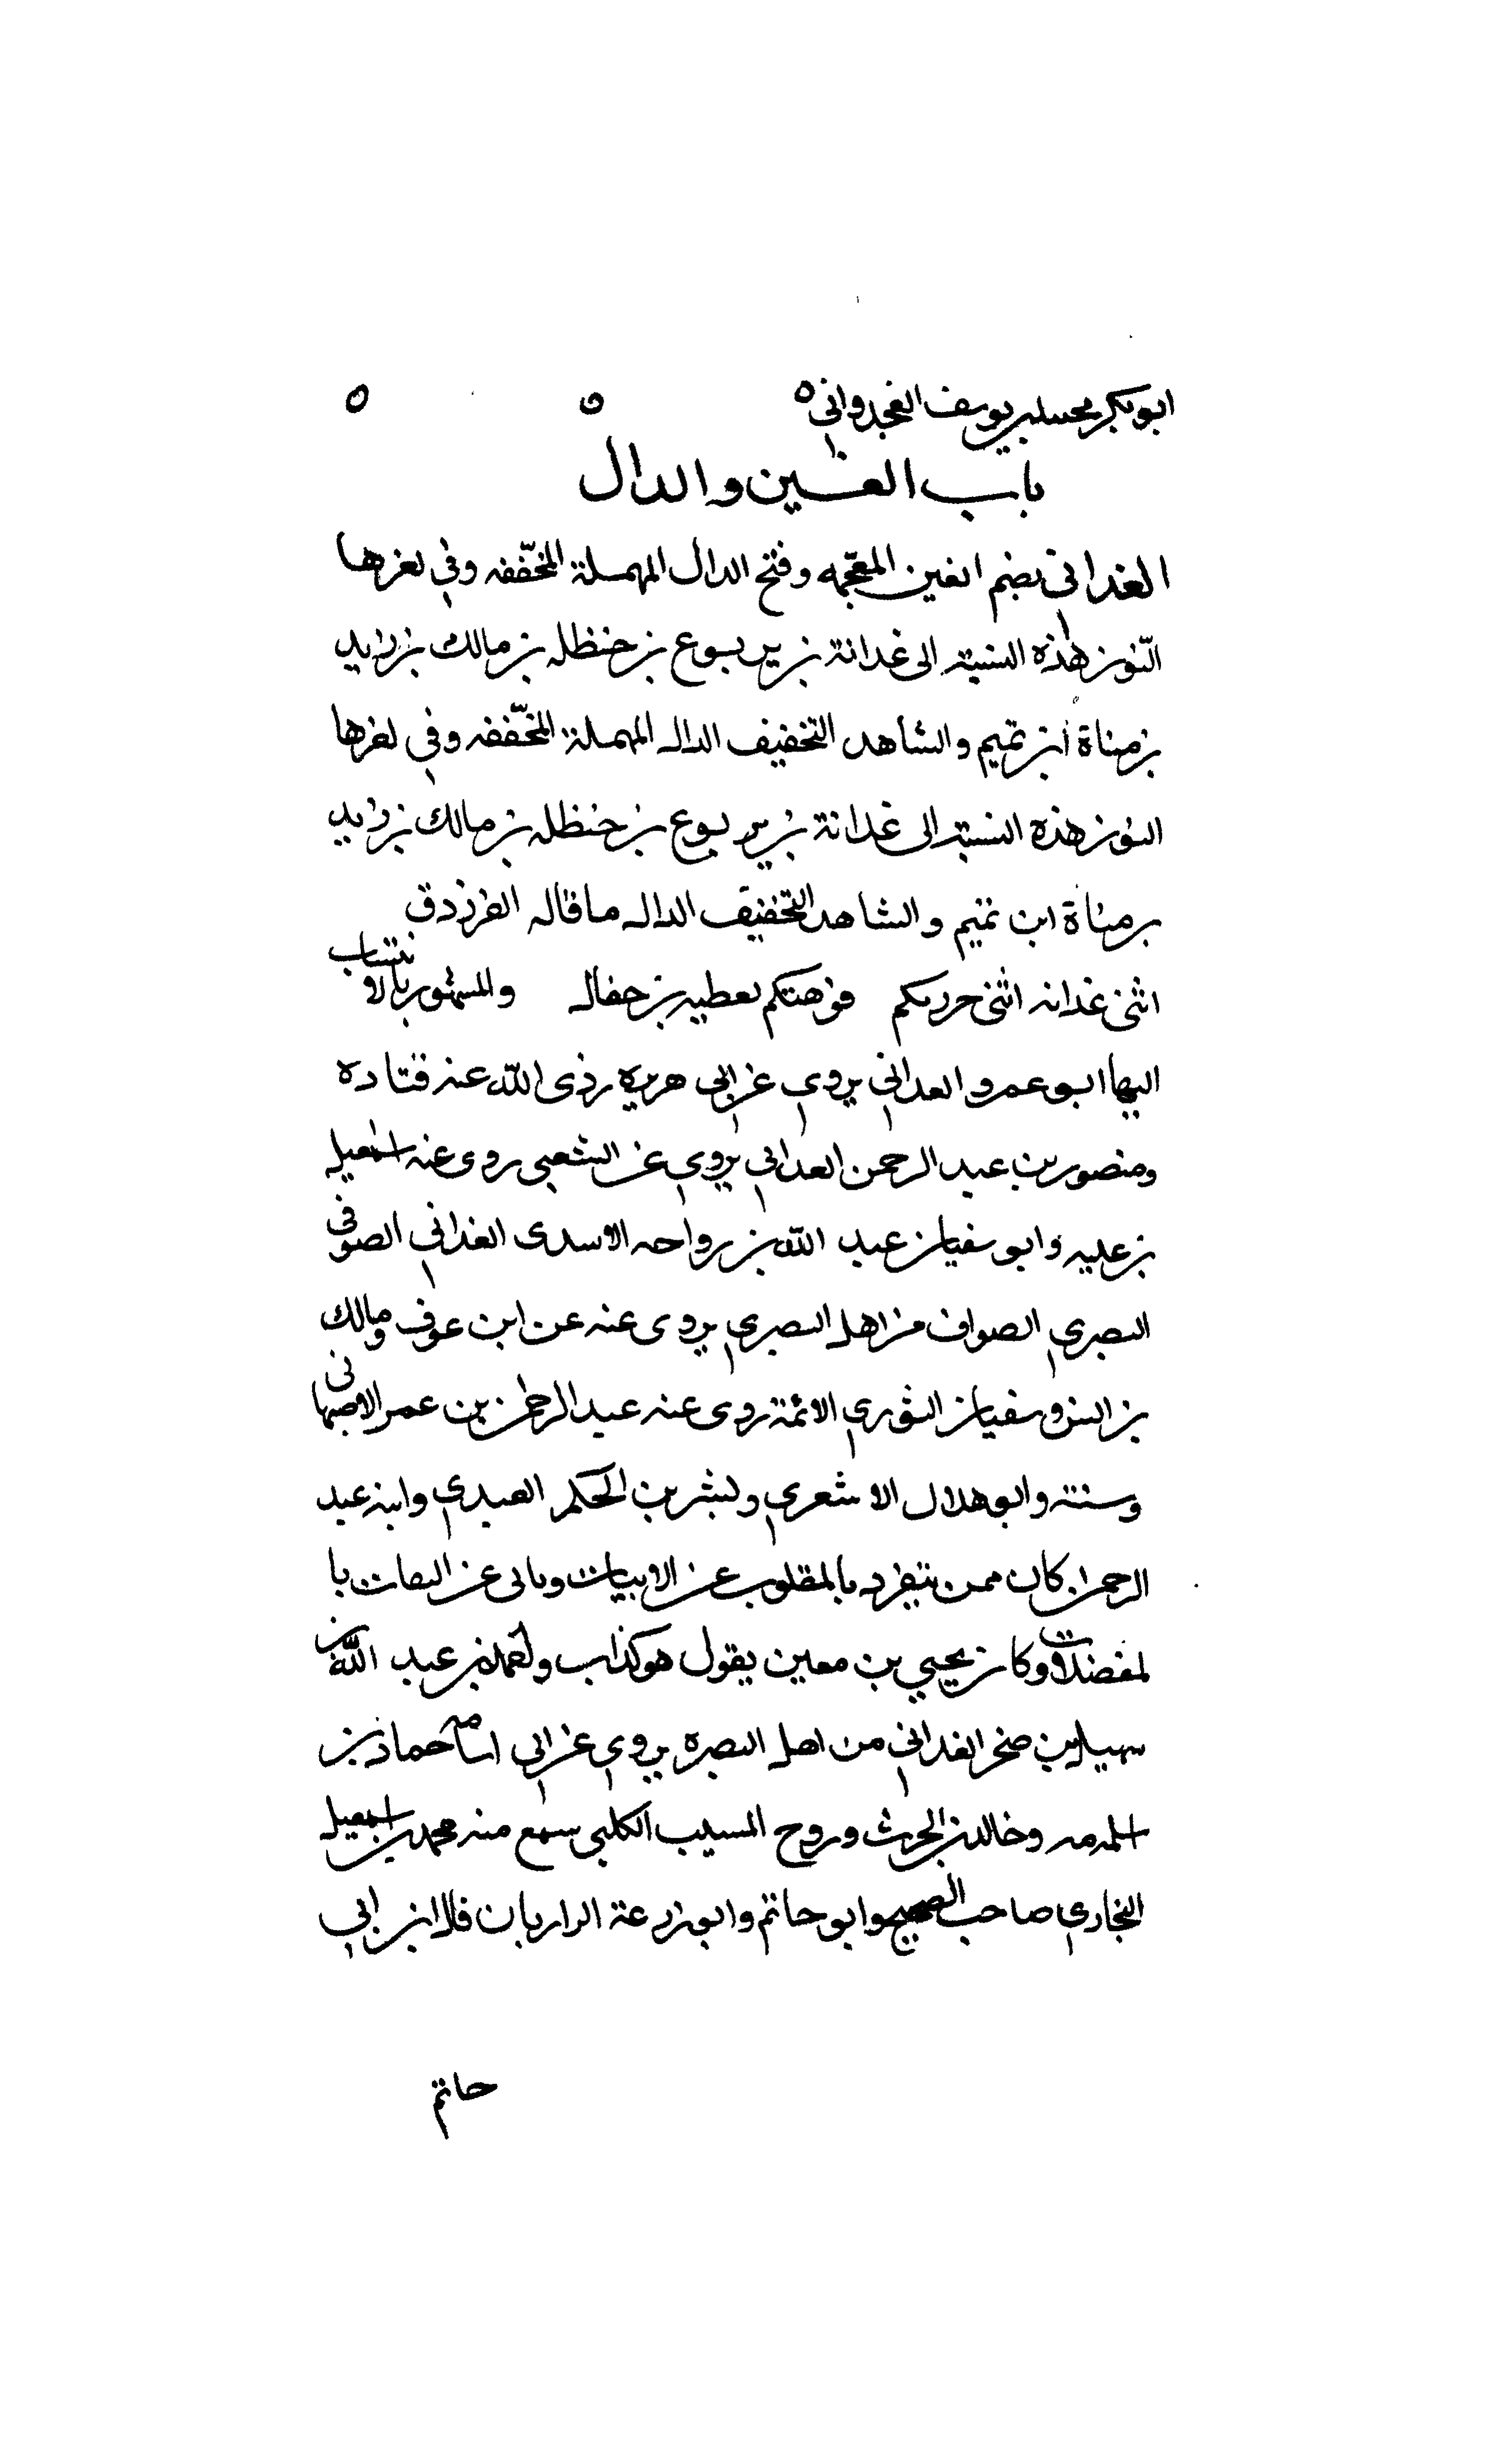 ابو بكر محمد بن يوسف الغجدواني ه ه ه
باب الغين والدال
الغداني بضم الغين المعجمه وفتح الدال المهملة المخففه وفي اخرها
النون هذه النسبة الى غدانة بن يربوع بن حنظله بن مالك بن زيد
بن مناة ابن تميم والشاهد التخفيف الدال المهملة المخففه وفي اخرها
النون هذه النسبة الى غدانة بن يربوع بن حنظله بن مالك بن زيد
بن مناة ابن تميم والشاهد التخفيف الدال ما قاله الفرزدق
اثنى غدانه اثنى حرركم فوهبتكم لعطيه بن حفال والمشهور بالانتساب
اليها ابو عمرو الغداني يروي عن ابي هريره رضى الله عنه قتاده
ومنصور بن عبد الرحمن الغداني يروي عن الشعبي روى عنه اسمعيل
بن عليه وابو سفيان عبد الله بن رواحه الاسدى الغداني الصوفي
البصري الصواف من اهل البصري يروى عنه عن ابن عوف ومالك
بن انس وسفيان الثوري الائمة روى عنه عبد الرحمن بن عمر الاصبهاني
وسنته وابو هلال الاشعري وبشر بن الحكم العبدي وابنه عبد
الرحمن كان ممن يتفرد بالمقلوب عن الابيات وياتى عن الثقات با
لمفضلات وكان يحيي بن معين يقول هو كذاب ولعمله بن عبد الله بن
سهيل بن صخر الغداني من اهل البصره يروي عن ابي اسامه حماد بن
اسلمه وخالد بن الحرث وروح المسيب الكلبي سمع منه محمد بن اسمعيل
البخاري صاحب الصحيح وابو حاتم وابو زرعة الرازيان قال ابن ابي
حاتم